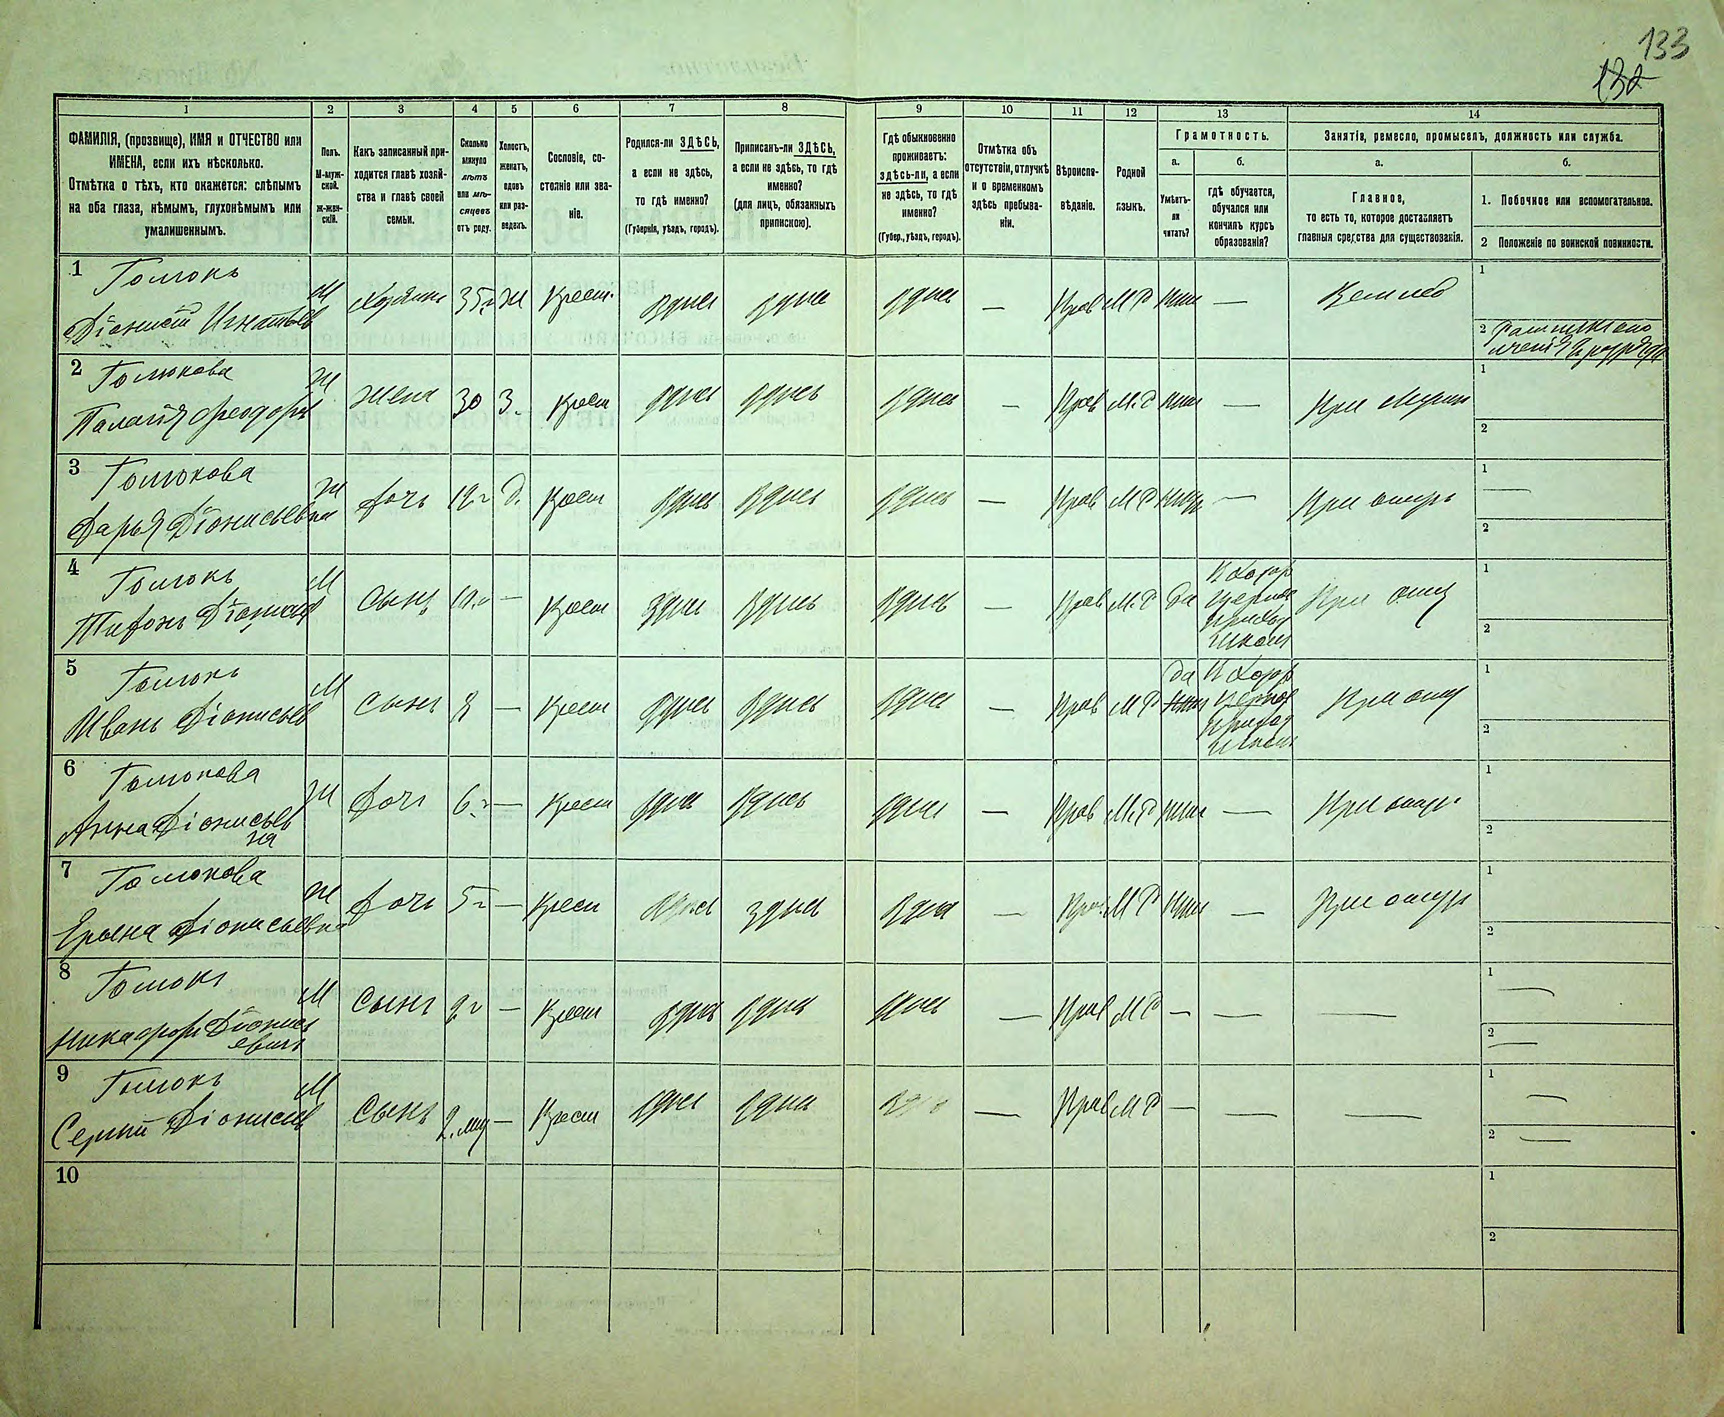 133
132
1
2
3
4
5
6
7
8
9
10
11
12
13
14
ФАМИЛІЯ, (прозвище), ИМЯ и ОТЧЕСТВО или
ИМЕНА, если ихъ нѣсколько.
Отмѣтка о тѣхъ, кто окажется: слѣпымъ
на оба глаза, нѣмымъ, глухонѣмымъ или
умалишеннымъ.
Полъ.
М-муж-
ской.
ж-жен-
скій.
Какъ записанный при-
ходится главѣ хозяй-
ства и главѣ своей
семьи.
Сколько
минуло
лѣтъ
или мѣ-
сяцевъ
отъ роду.
Холостъ,
женатъ,
вдовъ
или раз-
веденъ.
Сословіе, со-
стояніе или зва-
ніе.
Родился-ли ЗДѢСЬ,
а если не здѣсь,
то гдѣ именно?
(Губернія, уѣздъ, городъ).
Приписанъ-ли ЗДѢСЬ,
а если не здѣсь, то гдѣ
именно?
(для лицъ, обязанныхъ
припискою).
Гдѣ обыкновенно
проживаетъ:
здѣсь-ли, а если
не здѣсь, то гдѣ
именно?
(Губер., уѣздъ, городъ).
Отмѣтка объ
отсутствіи, отлучкѣ
и о временномъ
здѣсь пребыва-
ніи.
Вѣроиспо-
вѣданіе.
Родной
языкъ.
Грамотность.
а.
Умѣетъ-
ли
читать?
б.
гдѣ обучается,
обучался или
кончилъ курсъ
образованія?
Занятія, ремесло, промыселъ, должность или служба.
а.
Главное,
то есть то, которое доставляетъ
главныя средства для существованія.
б.
1. Побочное или вспомогательное.
2 Положеніе по воинской повинности.
1 Гомонъ
Діонисій Игнатьев
М Хозяинъ 35 г. Ж Крест. здѣсь здѣсь здѣсь — Прав М Р — Землед
1
2
2 Гомонова
Палагія Феодоров
Ж жена 30 З. Крест здѣсь здѣсь здѣсь — Прав М.Р —
1
2
3 Гомонова
Дарья Діонисьевна
Ж Дочь 12 г Д. Крест здѣсь здѣсь здѣсь — Прав М Р — При отцѣ
1 —
2
4 Гомонъ
Тифонъ Діонисьев
М Сынъ — Крест здѣсь здѣсь здѣсь — Прав М.Р Да При отцѣ
1
2
5 Гомонъ
Иванъ Діонисьев
М Сынъ 8 — Крест здѣсь здѣсь здѣсь — Прав М Р да При отцѣ
1
2
6 Гомонова
Анна Діонисьев
на
Ж Дочь 6 г — Крест здѣсь здѣсь здѣсь — Прав М.Р — При отцѣ
1
2
7 Гомонова
Ерына Діонисьевна
Ж Дочь 5 г — Крест здѣсь здѣсь здѣсь — Прав М Р — При отцѣ
1
2
8 Гомонъ
Никафоръ Діонись
евичъ
М Сынъ 2 г — Крест здѣсь здѣсь здѣсь — Прав М Р — — —
1 —
2 —
9 Гомонъ
Сергій Діонисьев
М Сынъ 2. мѣс — Крест здѣсь здѣсь — Прав М Р — — —
1 —
2 —
10
1
2